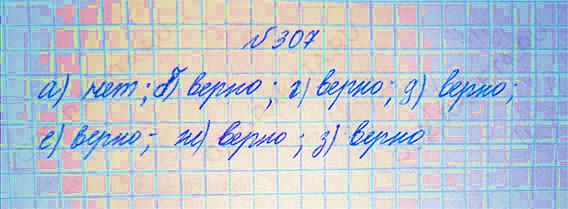 №307
а) нет; б) верно; г) верно; д) верно;
е) верно; ж) верно; з) верно.